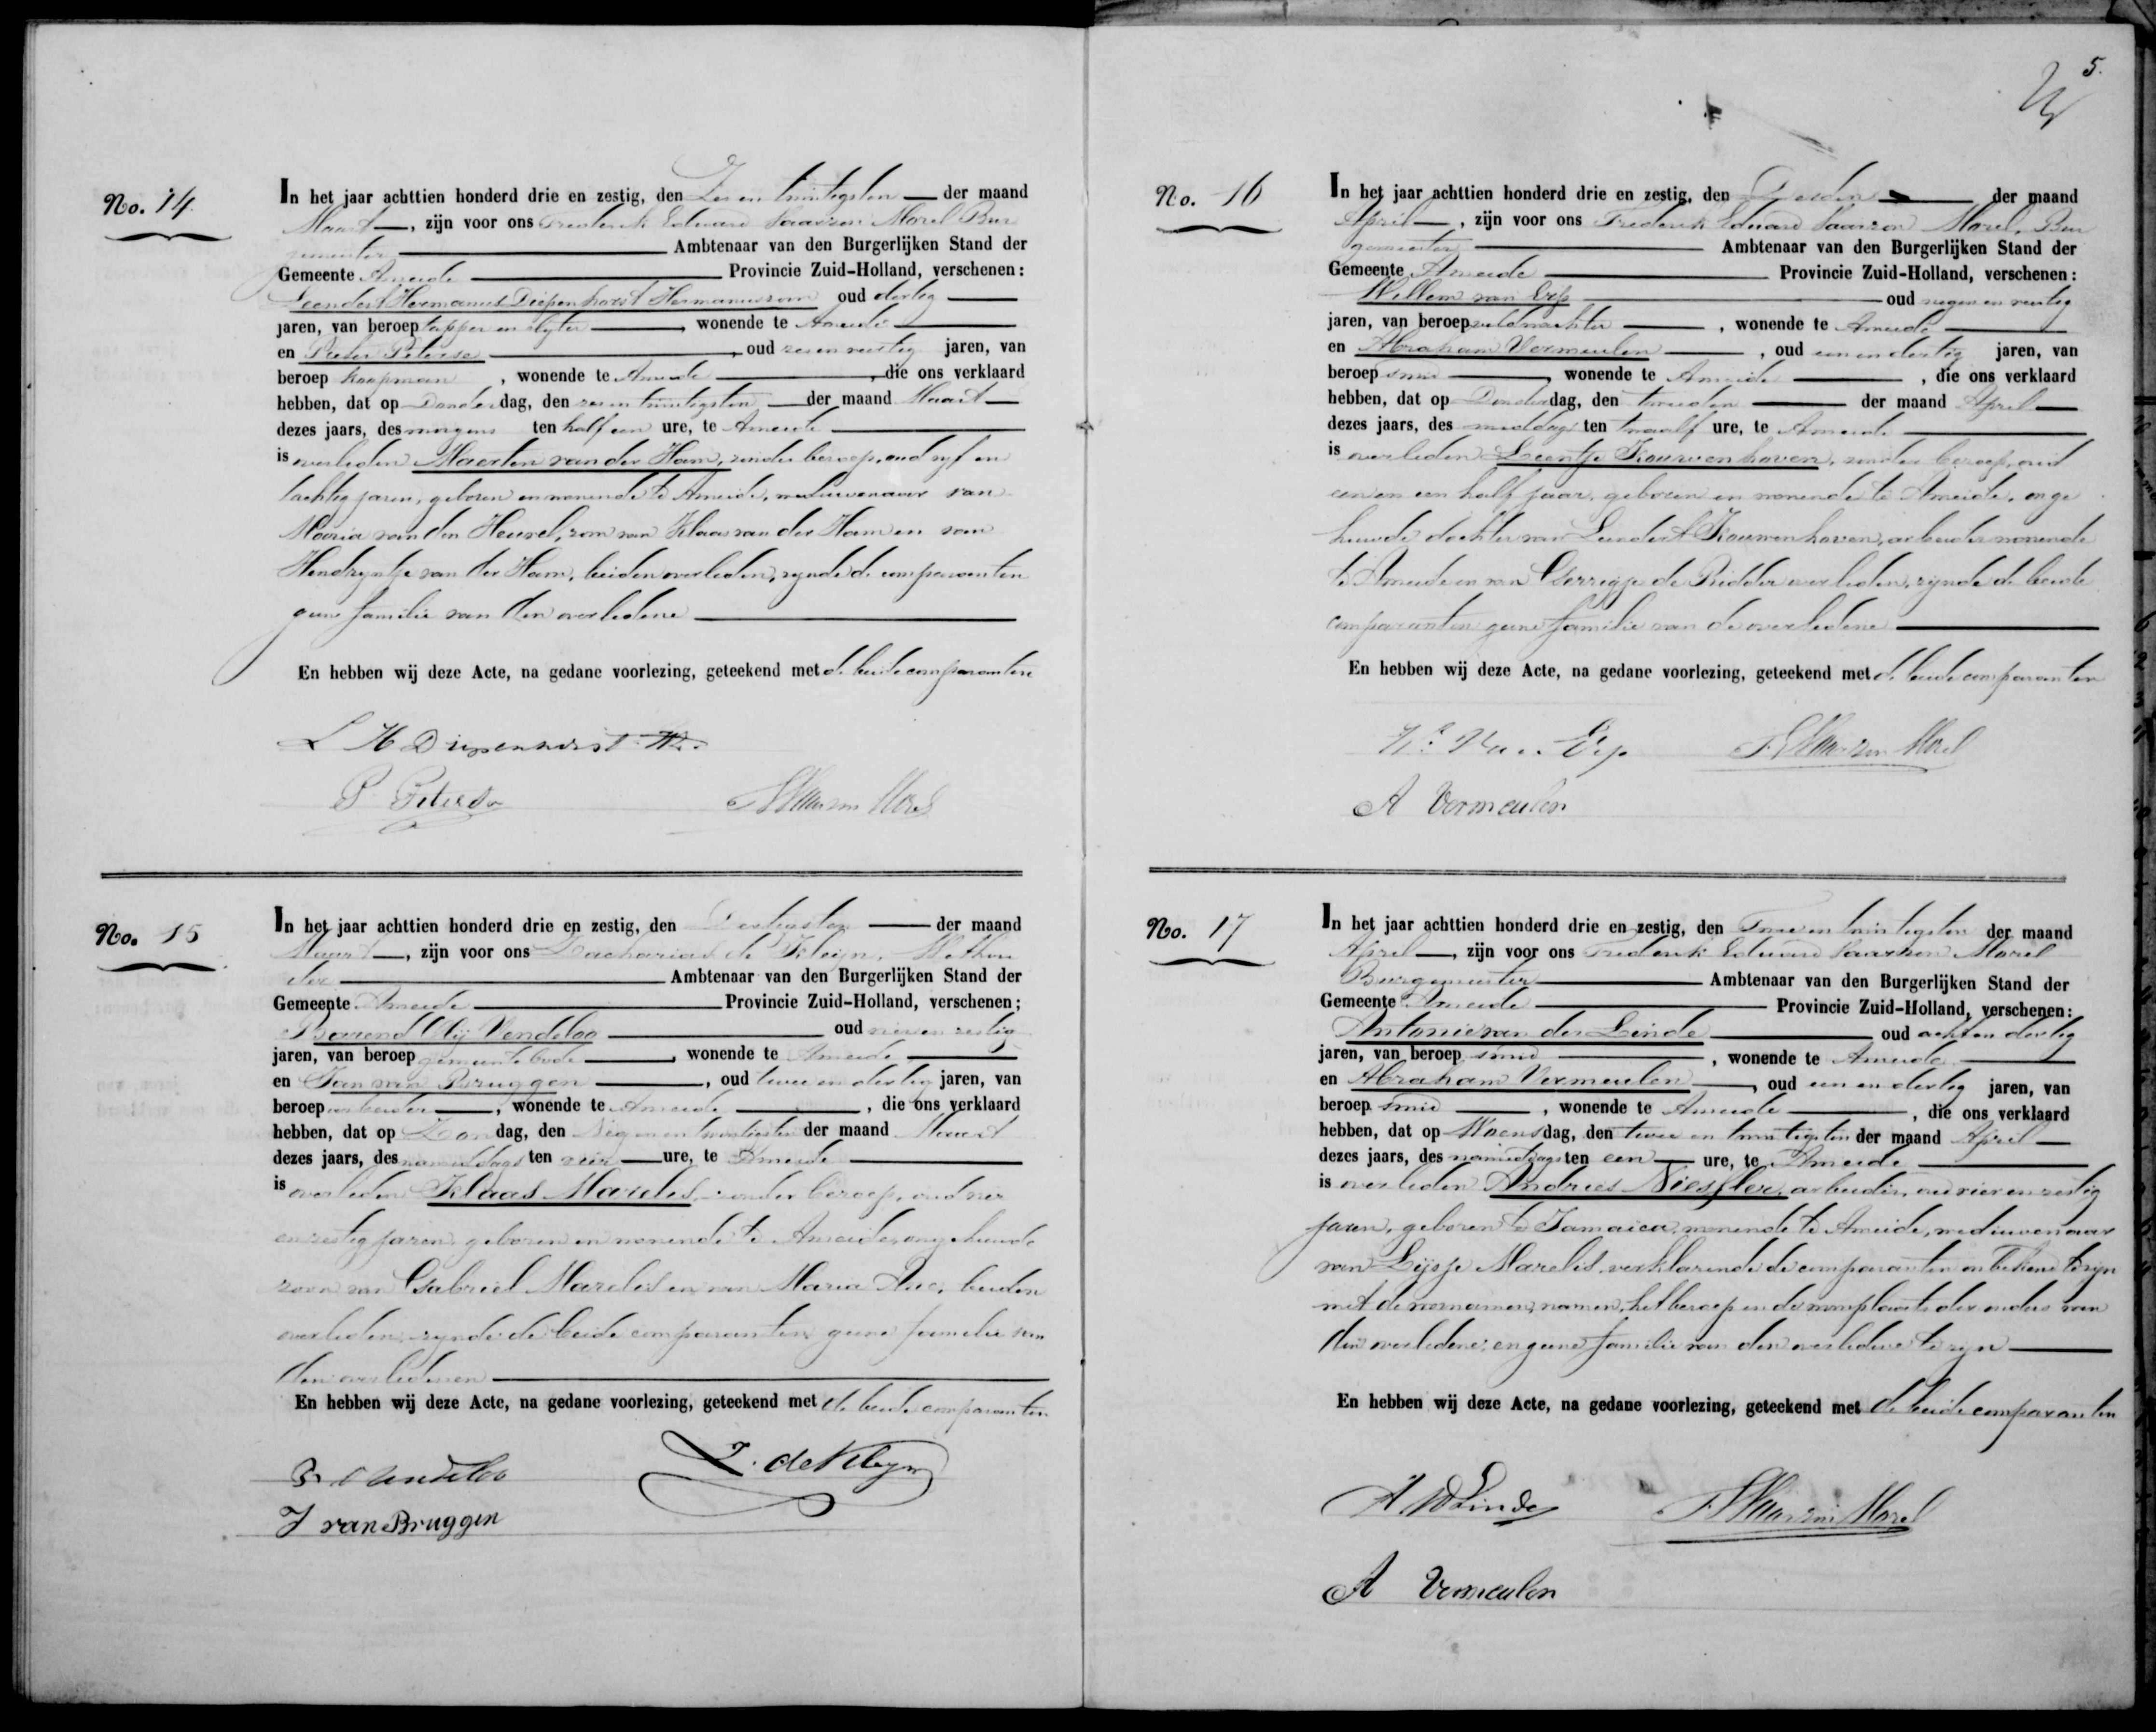 No. 14.
In het jaar achttien honderd drie en zestig, den Zes en twintigsten der maand
Maart, zijn voor ons Frederik Eduard Saavzon Morel Bur
gemeester Ambtenaar van den Burgerlijken Stand der
Gemeente Ameide Provincie Zuid-Holland, verschenen:
Leendert Hermanus Diepenhorst Hermanuszoon oud dertig
jaren, van beroep tapper en slyter, wonende te Ameide
en Pieter Peterse, oud zes en veertig jaren, van
beroep koopman, wonende te Ameide, die ons verklaard
hebben, dat op Donderdag, den zes en twintigsten der maand Maart
dezes jaars, des morgens ten half een ure, te Ameide
is overleden Maarten van der Ham, zonder beroep, oud vyf en
tachtig jaren, geboren en wonende te Ameide, weduwenaar van
Maria van den Heuvel, zoon van Klaas van der Ham en van
Hendryntje van der Ham, beiden overleden, zynde de comparanten
geene familie van den overledene
En hebben wij deze Acte, na gedane voorlezing, geteekend met de beide comparanten
L H Diepenhorst Hz.
P Peterse
F E Saavzon Morel
No. 15
In het jaar achttien honderd drie en zestig, den Dertigsten der maand
Maart, zijn voor ons Zacharias de Kleijn, Wethou
der Ambtenaar van den Burgerlijken Stand der
Gemeente Ameide Provincie Zuid-Holland, verschenen;
Barend Vendeloo oud zestig
jaren, van beroep gemeentebode, wonende te Ameide
en Jan van Bruggen, oud twee en dertig jaren, van
beroep arbeider, wonende te Ameide, die ons verklaard
hebben, dat op Zondag, den Negen en twintigsten der maand Maart
dezes jaars, des namiddags ten vier ure, te Ameide
is overleden Klaas Marelis, zonder beroep, oud vier
en zestig jaren, geboren en wonende te Ameide, ongehuwde
zoon van Gabriel Marelis en van Maria beiden
overleden, zynde de beide comparanten geene familie van
den overledenen
En hebben wij deze Acte, na gedane voorlezing, geteekend met de beide comparanten
B. Vendeloo
Z. de Kleyn
J van Bruggen
5.
No. 16
In het jaar achttien honderd drie en zestig, den Derden der maand
April, zijn voor ons Frederik Eduard Saavzon Morel, Bur
gemeester Ambtenaar van den Burgerlijken Stand der
Gemeente Ameide Provincie Zuid-Holland, verschenen:
Willem van Erp oud negen en veertig
jaren, van beroep veldwachter, wonende te Ameide
en Abraham Vermeulen, oud een en dertig jaren, van
beroep smid, wonende te Ameide, die ons verklaard
hebben, dat op Donderdag, den tweeden der maand April
dezes jaars, des middags ten twaalf ure, te Ameide
is overleden Leentje Kouwenhoven, zonder beroep, oud
een en een half jaar, geboren en wonende te Ameide, onge
huwde dochter van Leendert Kouwenhoven, arbeider wonende
te Ameide en van Gerrigje de Ridder overleden, zijnde de beide
comparanten geene familie van de overledene
En hebben wij deze Acte, na gedane voorlezing, geteekend met de beide comparanten
Wm Van Erp
F E Saavzon Morel
A Vermeulen
No. 17
In het jaar achttien honderd drie en zestig, den Twee en twintigsten der maand
April, zijn voor ons Frederik Eduard Saavzon Morel
Burgemeester Ambtenaar van den Burgerlijken Stand der
Gemeente Ameide Provincie Zuid-Holland, verschenen:
Antonie van der Linde oud acht en dertig
jaren, van beroep smid, wonende te Ameide
en Abraham Vermeulen, oud een en dertig jaren, van
beroep smid, wonende te Ameide, die ons verklaard
hebben, dat op Woensdag, den twee en twintigsten der maand April
dezes jaars, des namiddags ten een ure, te Ameide
is overleden Andries Niessfler, arbeider, oud vier en zestig
jaren, geboren te Jamaica, wonende te Ameide, weduwenaar
van Lijsje Marelis, verklarende de comparanten onbekend te zyn
met de voornamen, namen, het beroep en de woonplaats der ouders van
den overledene, en geene familie van den overledene te zyn
En hebben wij deze Acte, na gedane voorlezing, geteekend met de beide comparanten
A. vd Linde
F E Saavzon Morel
A Vermeulen